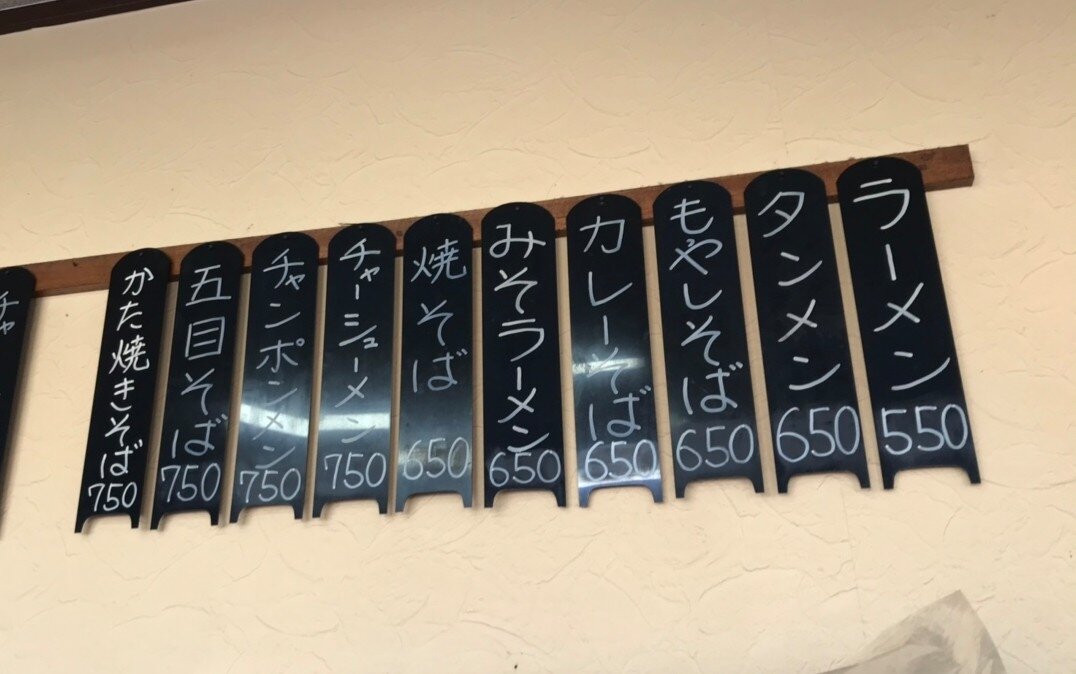 ラーメン550
タンメン650
もやしそば650
カレーそば650
みそラーメン650
焼そば650
チャーシューメン750
チャンポンメン750
五目そば750
かた焼きそば750
チャ